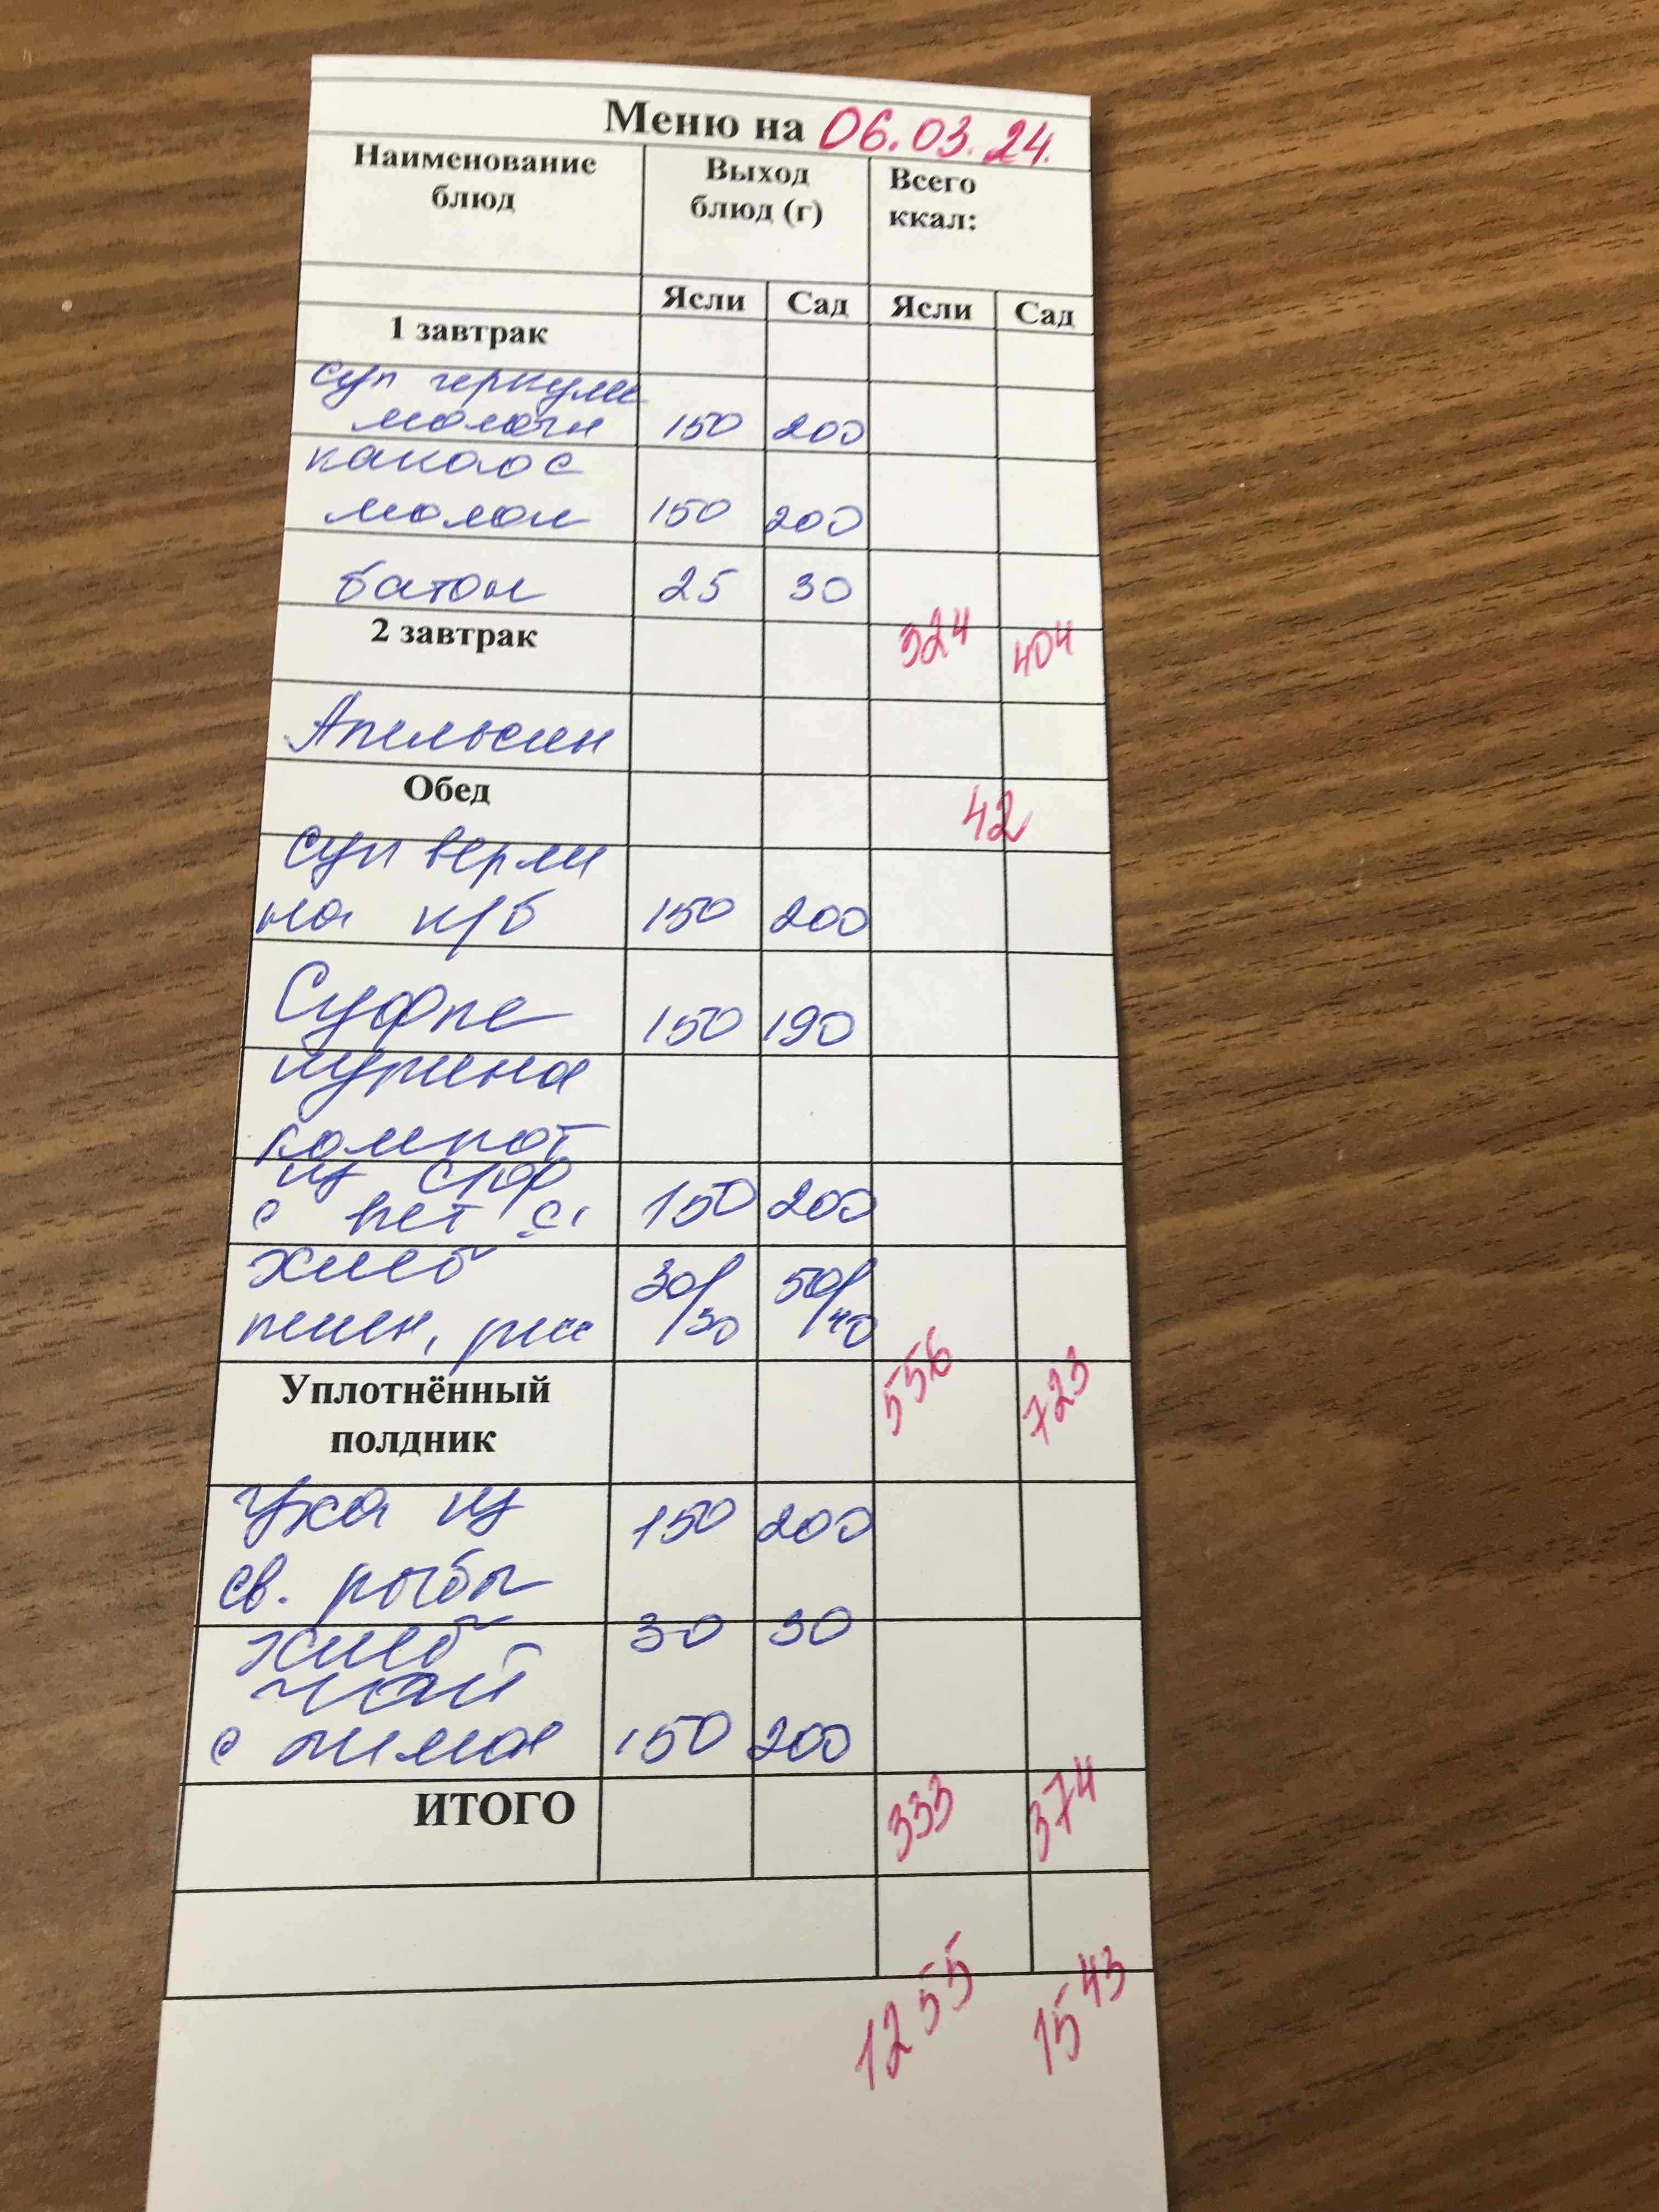 Меню на 06.03.24.
Наименование блюд Выход блюд (г) Всего ккал:
Ясли Сад Ясли Сад
1 завтрак
суп геркулес
молочн 150 200
какао с
молоком 150 200
батон 25 30
2 завтрак 324 404
Апельсин
Обед 42
Суп верми
на к/б 150 200
Суфле 150 190
курица
компот
из сухоф
с вит С 150 200
хлеб 30/30 50/40
пшен, рж
Уплотнённый 556 723
полдник
Уха из 150 200
св. рыбы
хлеб 30 30
чай
с лимон 150 200
ИТОГО 333 374
1255 1543